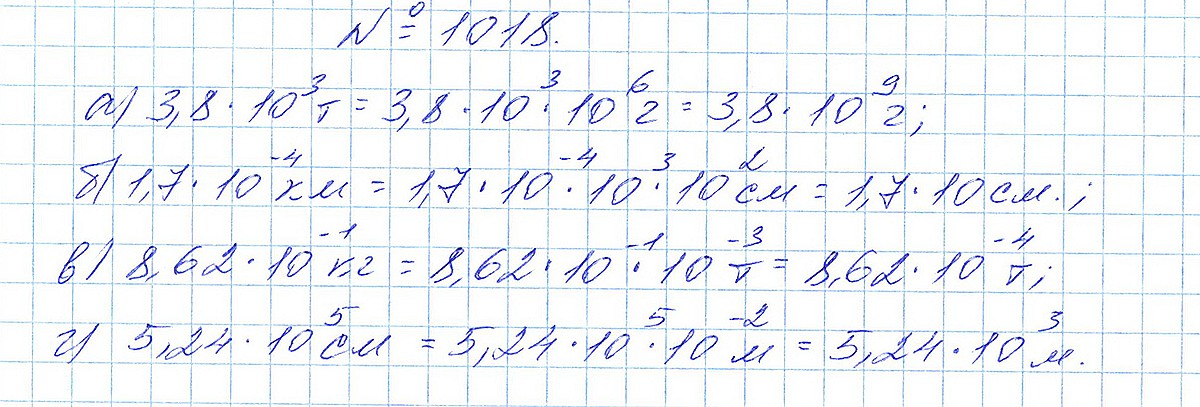 № 1018.
а) 3,8 · 10³ т = 3,8 · 10³ · 10⁶ г = 3,8 · 10⁹ г;
б) 1,7 · 10⁻⁴ км = 1,7 · 10⁻⁴ · 10³ · 10² см = 1,7 · 10 см.;
в) 8,62 · 10⁻¹ кг = 8,62 · 10⁻¹ · 10⁻³ т = 8,62 · 10⁻⁴ т;
г) 5,24 · 10⁵ см = 5,24 · 10⁵ · 10⁻² м = 5,24 · 10³ м.